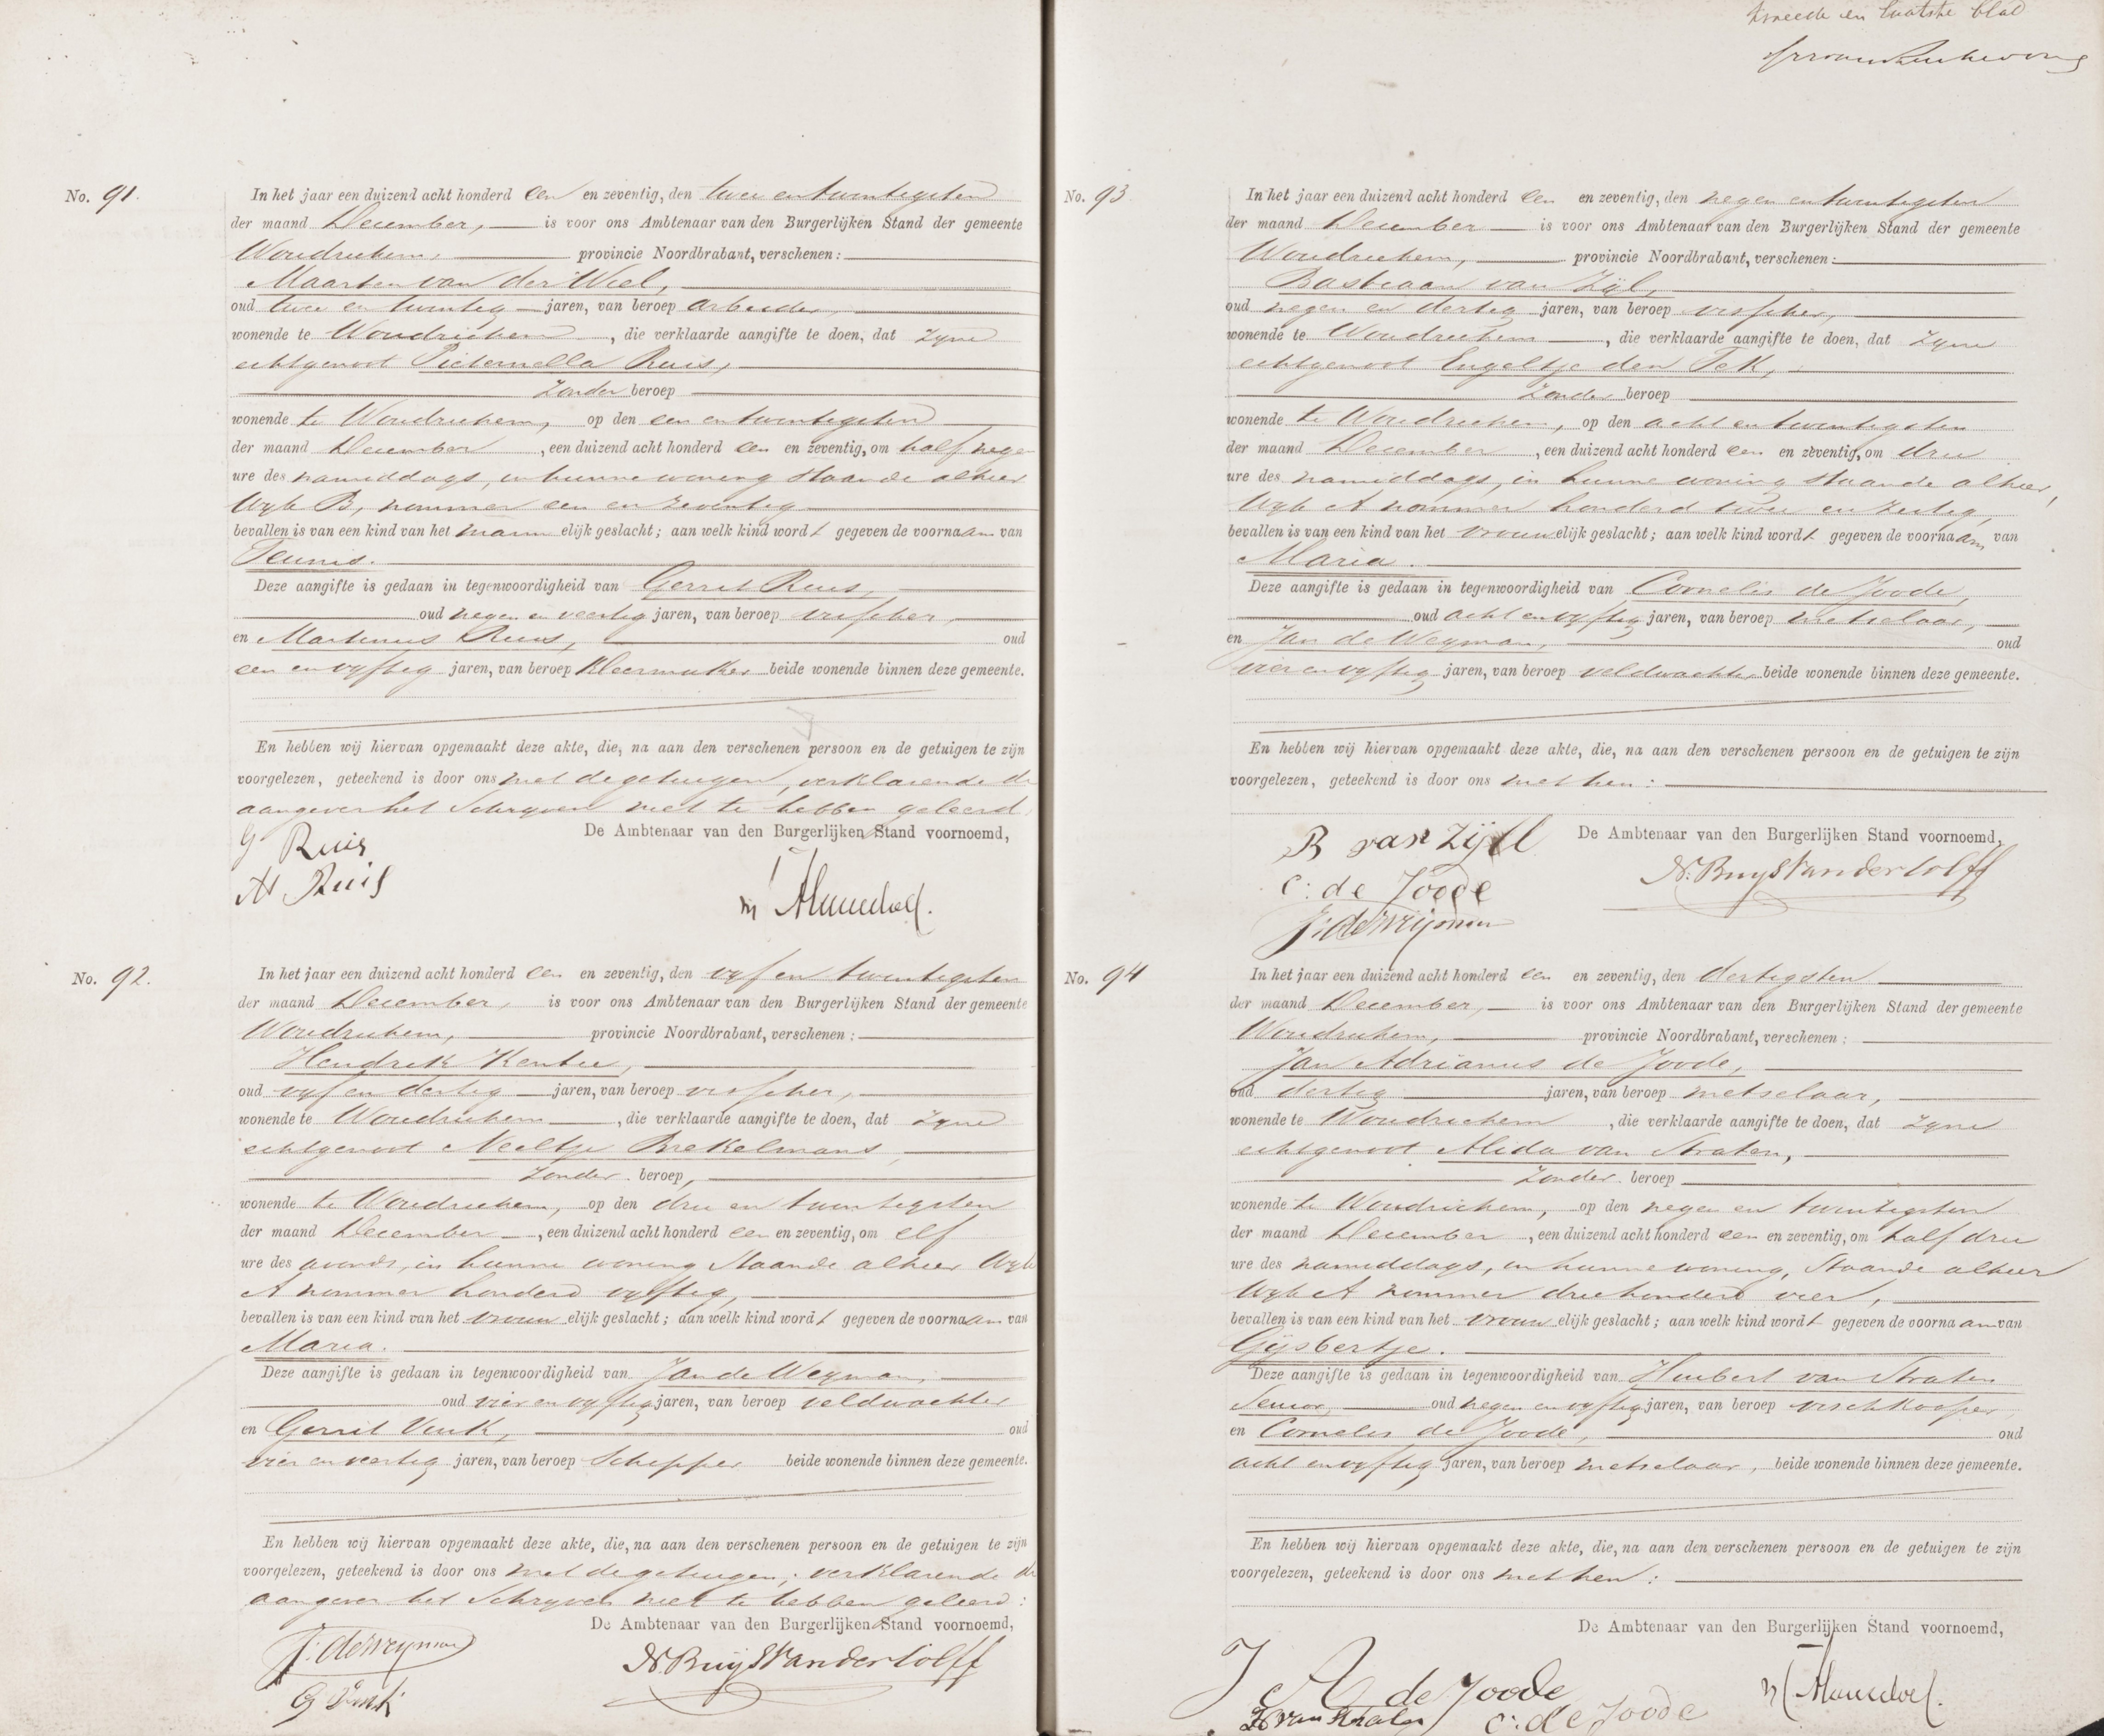 tweede en laatste blad
No. 91.
In het jaar een duizend acht honderd een en zeventig, den twee en twintigsten
der maand December, is voor ons Ambtenaar van den Burgerlijken Stand der gemeente
Woudrichem, provincie Noordbrabant, verschenen:
Maarten van der Wiel,
oud twee en twintig jaren, van beroep arbeider,
wonende te Woudrichem, die verklaarde aangifte te doen, dat zyne
echtgenoot Pieternella Ruis,
zonder beroep
wonende te Woudrichem, op den een en twintigsten
der maand December, een duizend acht honderd een en zeventig, om half nege
ure des namiddags, in hunne woning staande alhier
Wyk B, nommer een en zeventig
bevallen is van een kind van het mannelijk geslacht; aan welk kind wordt gegeven de voornaam van
Teunis.
Deze aangifte is gedaan in tegenwoordigheid van Gerrit Ruis,
oud negen en veertig jaren, van beroep visscher,
en Martinus Ruis, oud
een en vyftig jaren, van beroep kleermaker beide wonende binnen deze gemeente.
En hebben wij hiervan opgemaakt deze akte, die, na aan den verschenen persoon en de getuigen te zijn
voorgelezen, geteekend is door ons met de getuigen, verklarende de
aangever het schryven niet te hebben geleerd
De Ambtenaar van den Burgerlijken Stand voornoemd,
G Ruis
M Ruis
No. 92.
In het jaar een duizend acht honderd een en zeventig, den vyf en twintigsten
der maand December, is voor ons Ambtenaar van den Burgerlijken Stand der gemeente
Woudrichem, provincie Noordbrabant, verschenen:
Hendrik Kentie,
oud vyf en dertig jaren, van beroep visscher,
wonende te Woudrichem, die verklaarde aangifte te doen, dat zyne
echtgenoot Neeltje Brekelmans,
zonder beroep,
wonende te Woudrichem, op den drie en twintigsten
der maand December, een duizend acht honderd een en zeventig, om elf
ure des avonds, in hunne woning staande alhier Wyk
A nommer honderd vyftig,
bevallen is van een kind van het vrouwelijk geslacht; aan welk kind wordt gegeven de voornaam van
Maria.
Deze aangifte is gedaan in tegenwoordigheid van Jan de Weyman,
oud vier en vyftig jaren, van beroep veldwachter
en Gerrit Vink, oud
vier en veertig jaren, van beroep Schipper beide wonende binnen deze gemeente.
En hebben wij hiervan opgemaakt deze akte, die, na aan den verschenen persoon en de getuigen te zijn
voorgelezen, geteekend is door ons met de getuigen; verklarende de
aangever het schryven niet te hebben geleerd:
De Ambtenaar van den Burgerlijken Stand voornoemd,
J: de Weyman
G Vink
No. 93
In het jaar een duizend acht honderd een en zeventig, den negen en twintigsten
der maand December is voor ons Ambtenaar van den Burgerlijken Stand der gemeente
Woudrichem, provincie Noordbrabant, verschenen:
Bastiaan van Zijl,
oud negen en dertig jaren, van beroep visscher,
wonende te Woudrichem, die verklaarde aangifte te doen, dat zyne
echtgenoot Engeltje den Tek,
zonder beroep
wonende te Woudrichem, op den acht en twintigsten
der maand December, een duizend acht honderd een en zeventig, om drie
ure des namiddags, in hunne woning staande alhier,
Wyk A nommer honderd twee en zestig,
bevallen is van een kind van het vrouwelijk geslacht; aan welk kind wordt gegeven de voornaam van
Maria.
Deze aangifte is gedaan in tegenwoordigheid van Cornelis de Joode,
oud acht en vyftig jaren, van beroep metselaar,
en Jan de Weyman, oud
vier en vyftig jaren, van beroep veldwachter, beide wonende binnen deze gemeente.
En hebben wij hiervan opgemaakt deze akte, die, na aan den verschenen persoon en de getuigen te zijn
voorgelezen, geteekend is door ons met hen:
De Ambtenaar van den Burgerlijken Stand voornoemd,
B van Zijll
C: de Joode
J: de Weyman
No. 94
In het jaar een duizend acht honderd een en zeventig, den dertigsten
der maand December, is voor ons Ambtenaar van den Burgerlijken Stand der gemeente
Woudrichem, provincie Noordbrabant, verschenen:
Jan Adrianus de Joode,
oud dertig jaren, van beroep metselaar,
wonende te Woudrichem, die verklaarde aangifte te doen, dat zyne
echtgenoot Alida van Straten,
zonder beroep
wonende te Woudrichem, op den negen en twintigsten
der maand December, een duizend acht honderd een en zeventig, om half drie
ure des namiddags, in hunne woning, staande alhier
Wyk A nommer driehonderd vier,
bevallen is van een kind van het vrouwelijk geslacht; aan welk kind wordt gegeven de voornaam van
Gijsbertje.
Deze aangifte is gedaan in tegenwoordigheid van Huibert van Straten
Senior, oud negen en vyftig jaren, van beroep vischkooper,
en Cornelis de Joode, oud
acht en vyftig jaren, van beroep metselaar, beide wonende binnen deze gemeente.
En hebben wij hiervan opgemaakt deze akte, die, na aan den verschenen persoon en de getuigen te zijn
voorgelezen, geteekend is door ons met hen:
De Ambtenaar van den Burgerlijken Stand voornoemd,
J A de Joode
H van Straten
C: de Joode